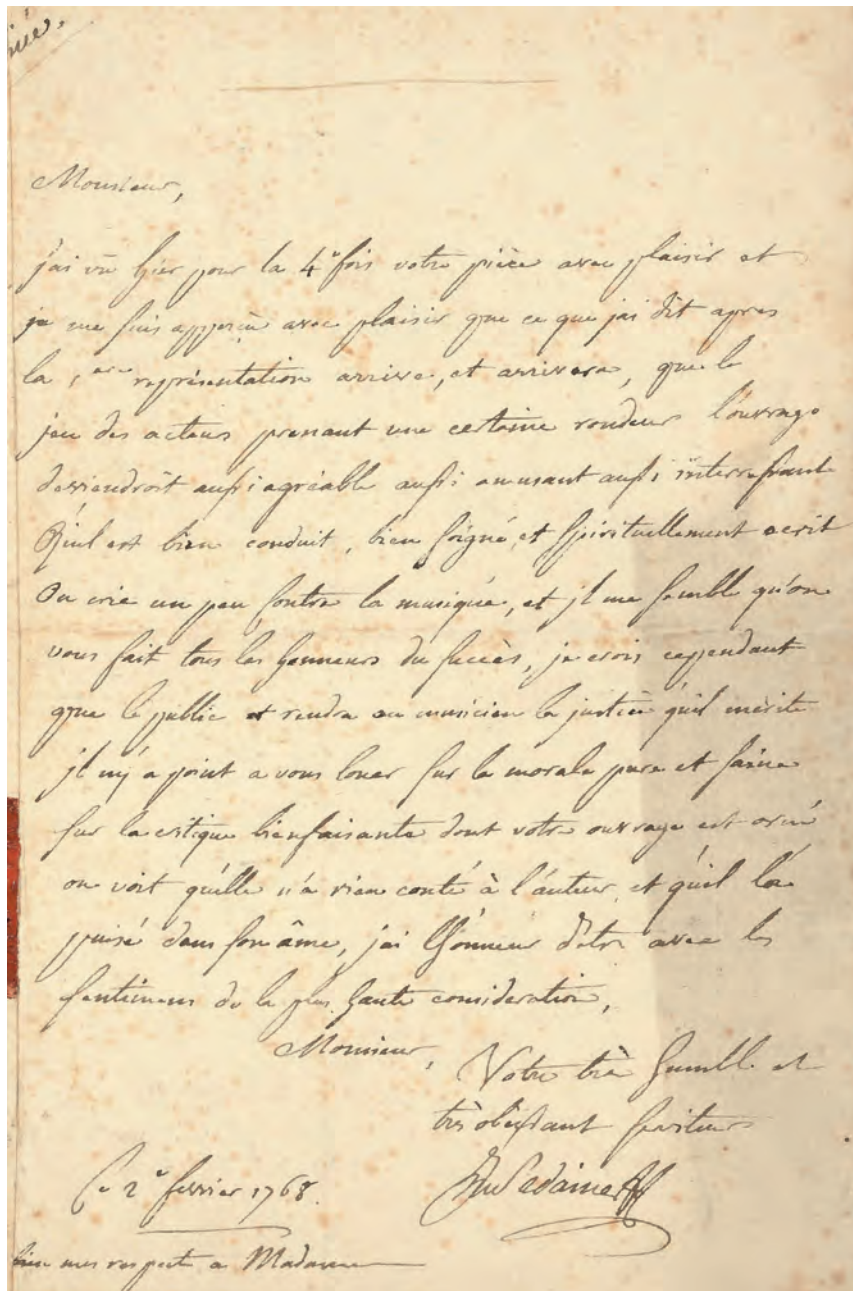 Monsieur,
j'ai vû hier pour la 4e fois votre pièce avec plaisir et
je me suis apperçu avec plaisir que ce que j'ai dit apres
la 1ere représentation arrive, et arrivera, que le
jeu des acteurs prenant une certaine rondeur l'ouvrage
deviendroit aussi agréable aussi amusant aussi interressant
Qu'il est bien conduit, bien soigné, et spirituellement ecrit
On crie un peu contre la musique, et jl me semble qu'on
vous fait tous les honneurs du succès, je crois cependant
que le public rendra au musicien la justice qu'il mérite
jl n'y a point a vous louer sur la morale pure et saine
sur la critique bienfaisante dont votre ouvrage est orné
on voit qu'elle n'a rien couté à l'auteur, et qu'il l'a
puisé dans son âme, j'ai l'honneur d'etre avec les
sentimens de la plus haute consideration,
Monsieur,
Votre très humble et
très obeissant serviteur
Sedaine
Ce 2e fevrier 1768.
bien mes respects a Madame